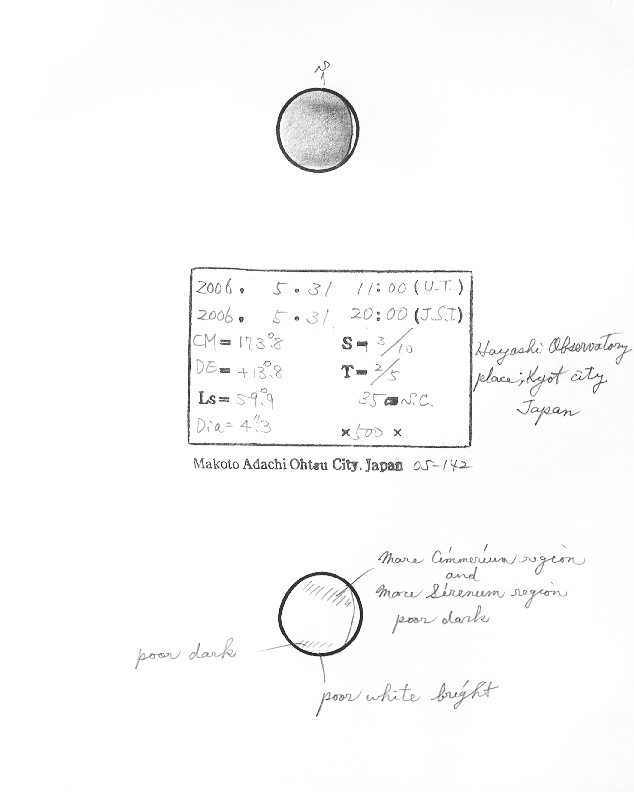 S
2006. 5.31 11:00 (U.T.)
2006. 5.31 20:00 (J.S.T)
CM = 173°.8 S = 3/10
DE = +13°.8 T = 2/5
Ls = 59°.9 35 cm N.C.
Dia = 4".3 ×500 ×
Hayashi Observatory
place; Kyot city
Japan
Makoto Adachi Ohtsu City. Japan 05-142
Mare Cimmerium region
and
Mare Sirenum region
poor dark
poor dark
poor white bright